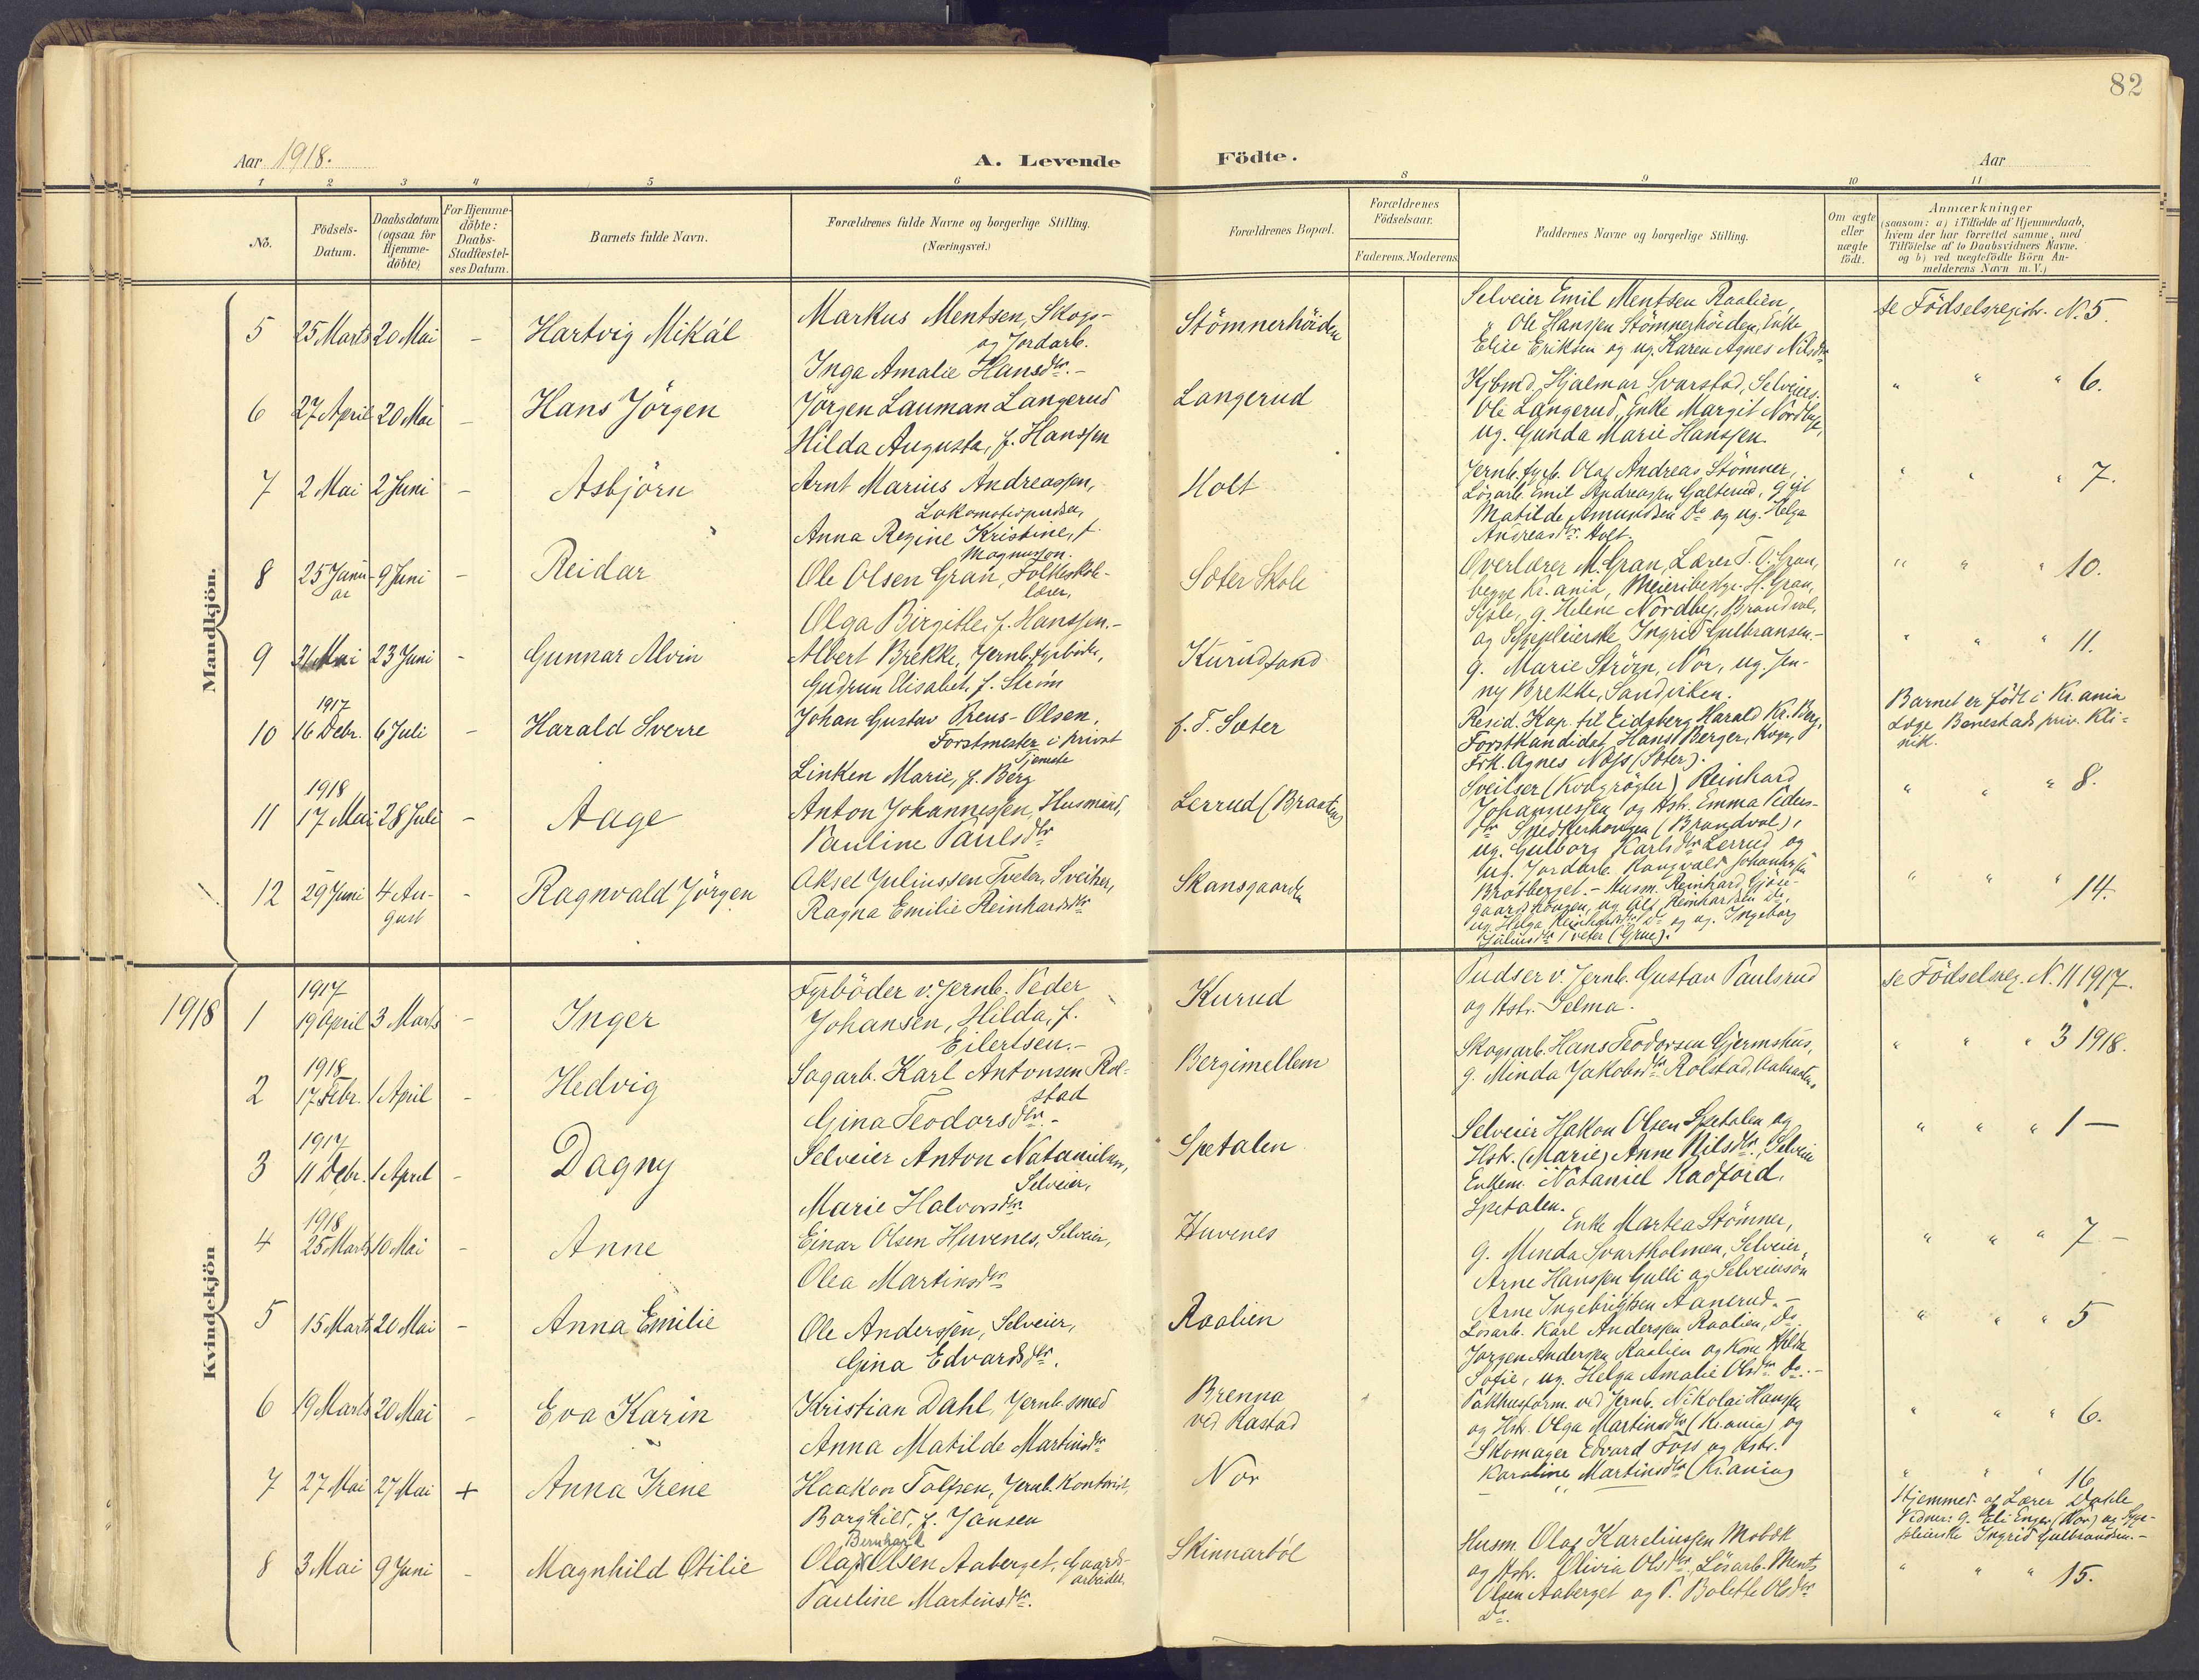 82
Aar 1918.
A. Levende Födte.
Aar
1 2 3 4 5 6 8 9 10 11
No.
Födsels-Datum.
Daabsdatum (ogsaa for Hjemme-döbte)
For Hjemme-döbte: Daabs-Stadfæstel-ses Datum.
Barnets fulde Navn.
Forældrenes fulde Navne og borgerlige Stilling. (Næringsvei.)
Forældrenes Bopæl.
Forældrenes Födselsaar.
Faderens. Moderens
Faddernes Navne og borgerlige Stilling.
Om ægte eller uægte födt.
Anmærkninger
(saasom: a) i Tilfælde af Hjemmedaab,
hvem der har forrettet samme, med
Tilföielse af to Daabsvidners Navne.
og b) ved uægtefödte Börn An-
melderens Navn m. V.)
Mandkjön.
5 25 Marts 20 Mai - Hartvig Mikál
Markus Mentsen, Skogs-
og Jordarb.
Inga Amalie Hansdtr. -
Stömnerhöiden
Selveier Emil Mentsen Raalien,
" Ole Hanssen Stömnerhöiden, Enke
Elise Eriksen og ug. Karen Agnes Nilsdtr
se Födselsregistr. N. 5.
6 27 April 20 Mai - Hans Jörgen
Jörgen Lauman Langerud
Hilda Augusta, f. Hanssen
Langerud
Kjbmd. Hjalmar Svarstad, Selveier
Ole Langerud, Enke Margit Nordby,
ug. Gunda Marie Hanssen.
" " " 6.
7 2 Mai 2 Juni - Asbjörn
Arnt Marius Andreassen,
Lokomotivpudser,
Anna Regine Kristine, f.
Magnusson.
Holt
Jernb.fyrb. Olaf Andreas Stömner,
Lösarb. Emil Andreassen Galterud, Gift
Matilde Amundsen Do og ug. Helga
Andreasdtr. Holt.
" " " 7.
8 25 Janu-ar 9 Juni - Reidar
Ole Olsen Gran, Folkeskole-
lærer,
Olga Birgitte, f. Hanssen. -
Sæter Skole
Overlærer M. Gran, Lærer T. O. Gran,
begge Kr.ania, Meieribestyr. H. Gran,
g. Helene Nordby, Brandval,
og Sygepleierske Ingrid Gulbransen. -
" " " 10.
9 31 Mai 23 Juni - Gunnar Alvin
Albert Brekke, Jernb.fyrböder,
Gudrun Elisabet, f. Ström
Kurudsand
g. Marie Ström, Nor, ug. Jen-
ny Brekke, Sandviken.
" " " 11.
1917
10 16 Debr. 6 Juli - Harald Sverre
Johan Gustav Preus-Olsen,
Forstmester i privat
Tjeneste
Linken Marie, f. Berg
f. T. Sæter
Resid. Kap. til Eidsberg Harald Kr. Berg,
Forstkandidat Hans Berger,
Frk. Agnes Næss (Sæter).
Barnet er födt i Kr.ania
Læge Bonestads priv. Kli-
nik.
1918
11 17 Mai 28 Juli - Aage
Anton Johannessen, Husmand,
Pauline Paulsdtr
Lerrud (Braaten)
Sveitser (Rodgrögter) Reinhard
Johannessen og Hstr. Emma Peders-
dtr Snedkerhaugen (Brandval),
ug. Gulborg Karlsdtr Lerrud og
ug. Jordarb. Rangvald Johannessen
Bratberget. -
" " " 8.
12 29 Juni 4 Au-gust - Ragnvald Jörgen
Aksel Juliussen Tveter, Sveitser,
Ragna Emilie Reinhardsdtr
Skansgaarden
Husm. Reinhard
ug. Helga Reinhardsdtr Do og ug. Ingeborg
Juliusdtr Tveter (Grue).
" " " 14.
Kvindekjön
1918
1917
1 19 April 3 Marts - Inger
Fyrböder v. Jernb. Peder
Johansen, Hilda, f.
Eilertsen. -
Kurud
Pudser v. Jernb. Gustav Paulsrud
og Hstr. Selma.
se Födselsreg. N. 11 1917.
1918
2 17 Febr. 1 April - Hedvig
Sagarb. Karl Antonsen Rol-
stad
Gina Teodorsdtr. -
Bergimellem
Skogsarb. Hans Teodorsen Gjermshus,
g. Minda Jakobsdtr Rolstad, Aabraaten
" " " 3 1918.
1917
3 11 Debr. 1 April - Dagny
Selveier Anton Natanielsen,
Selveier,
Marie Halvorsdtr
Spetalen
Selveier Hakon Olsen Spetalen og
Hstr. (Marie) Anne Nilsdtr., Selveier
Enkem. Nataniel Radföid,
Spetalen.
" " " 1 -
1918
4 25 Marts 10 Mai - Anne
Einar Olsen Huvenes, Selveier,
Olea Martinsdtr
Huvenes
Enke Martea Stömner,
g. Minda Svartholmen, Selveier
Arne Hanssen Gulli og Selveiersön
Arne Ingebrigtsen Aanerud. -
" " " 7 -
5 15 Marts 20 Mai - Anna Emilie
Ole Anderssen, Selveier,
Gina Edvardsdtr.
Raalien
Lösarb. Karl Anderssen Raalien, Do.
Jörgen Anderssen Raalien og Kone Hilda
Sofie, ug. Helga Amalie Olsdtr Do. -
" " " 5
6 19 Marts 20 Mai - Eva Karin
Kristian Dahl, Jernb. smed
Anna Matilde Martinsdtr
Brenna
ved Rastad
Pakhusform. ved Jernb. Nikolai Hanssen
og Hstr. Olga Martinsdtr (Kr.ania) og
Skomager Edvard Foss og Hstr.
Karoline Martinsdtr (Kr.ania)
" " " 6.
7 27 Mai 27 Mai + Anna Irene
Haakon Tolfsen, Jernb. Kontorist,
Borghild, f. Jansen
Nor
" "
" " " 16
Hjemmed. af Lærer Dahle
Vidner: g. Eli Enger (Nor) og Syge-
pleierske Ingrid Gulbrandsen. -
8 3 Mai 9 Juni - Magnhild Otilie
Bernhard
Olaf Olsen Aaberget, Gaards-
arbeider,
Pauline Martinsdtr.
Skinnarböl
Husm. Olaf Kareliussen Mobæk
og Hstr. Olivia Olsdtr., Lösarb. Ments
Olsen Aaberget og P. Bolette Olsdtr
Do.
" " " 15.